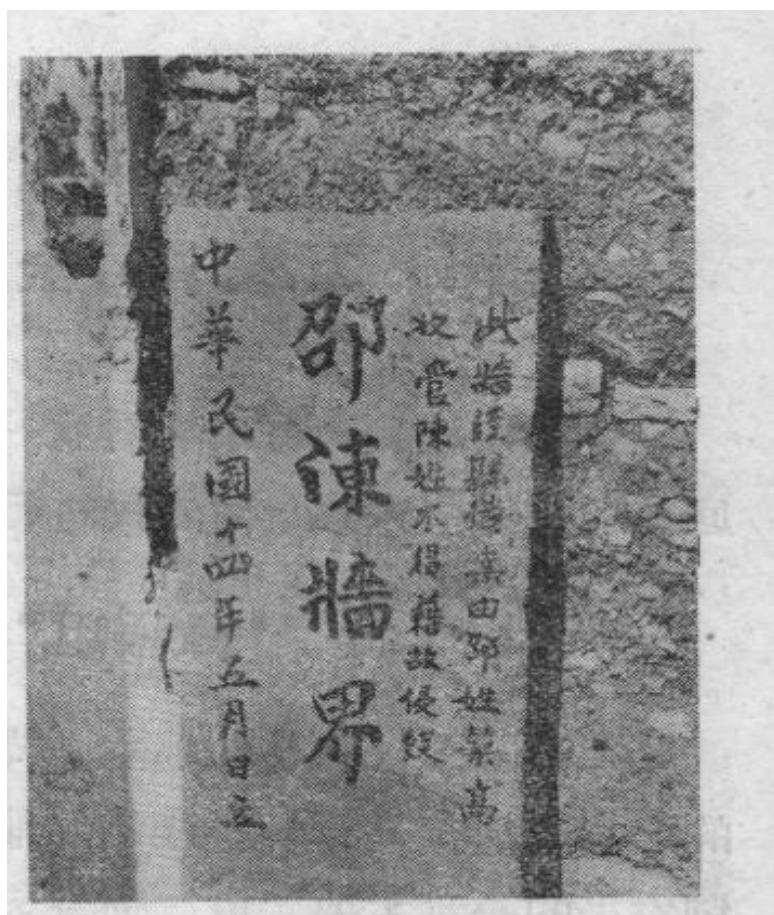 此牆經縣偕眞由邵姓築高
收管陳姓不得藉故侵毁
邵陳牆界
中華民國十四年五月日立